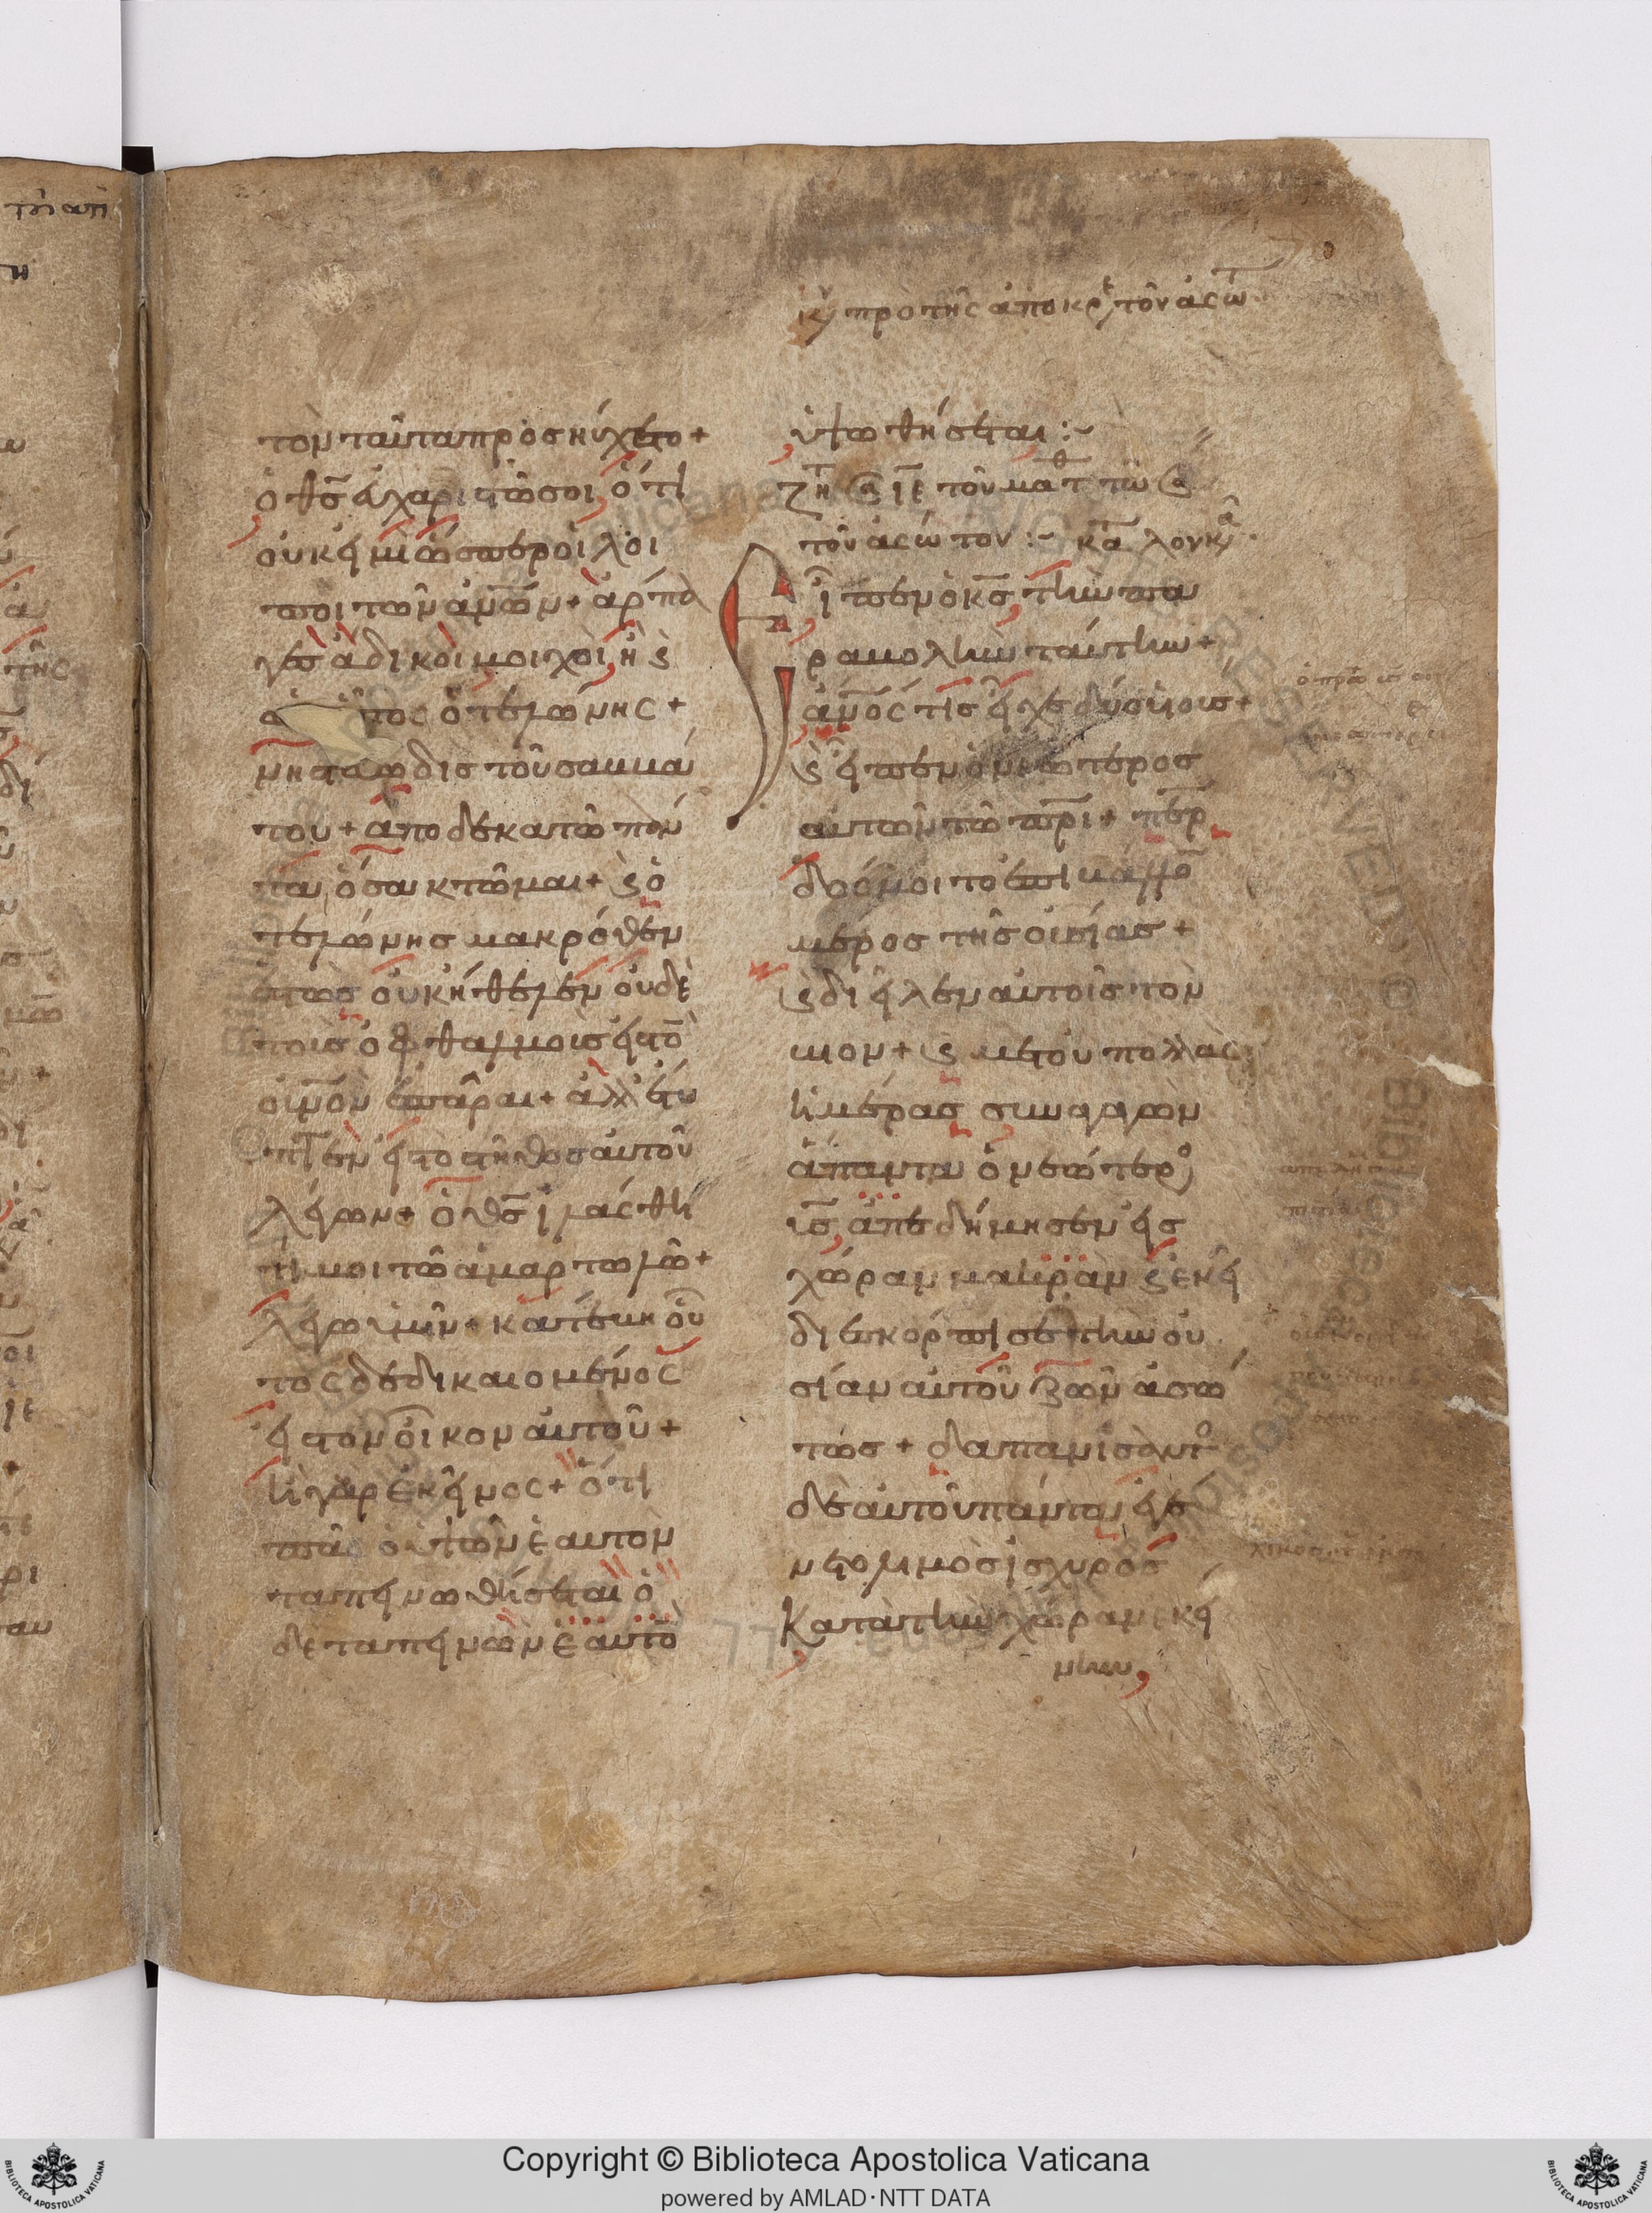 κυ πρὸ τῆς ἀποκρ τὸν ἀσώτ
τὸν ταῦτα προσηύχετο +
ὁ θς εὐχαριστῶ σοι ὅτι
οὐκ εἰμὶ ὥσπερ οἱ λοι
ποὶ τῶν ἀνων + ἅρπα
γες ἄδικοι μοιχοὶ ἢ ϛ
τος ὁ τελώνης +
νηστεύω δὶς τοῦ σαββά
του + ἀποδεκατῶ πάν
τα ὅσα κτῶμαι + ϛ ὁ
τελώνης μακρόθεν
ἑστὼς οὐκ ἤθελεν οὐδὲ
τοῖς ὀφθαλμοῖς εἰς τὸ
οὐνον ἐπᾶραι + ἀλλ ἔτυ
πτεν εἰς τὸ στῆθος αὐτοῦ
λέγων + ὁ θς ἱλάσθη
τί μοι τῶ ἁμαρτωλῶ +
λέγω ὑμῖν + κατέβη οὗ
τος δεδικαιομένος
εἰς τὸν οἶκον αὐτοῦ +
ἢ γὰρ ἐκεῖνος + ὅτι
πᾶς ὁ ὑψῶν ἑαυτὸν
ταπεινωθήσεται ὁ
δε ταπεινῶν ἑαυτὸ
ὑψωθήσεται :~
τοῦ ἀσώτου :~ κα λουκα
Εἶπεν ὁ κς τὴν πα
ραβολὴν ταύτην +
ἀνος τις εἶχε δύο υἱοὺς +
ϛ εἶπεν ὁ νεώτερος
αὐτῶν τῶ πρι + περ
δός μοι τὸ ἐπιβάλλο
μερος τῆς οὐσίας +
ϛ διεῖλεν αὐτοῖς τὸν
βίον + ϛ μετ οὐ πολλὰς
ἡμέρας συναγαγὼν
ἅπαντα ὁ νεώτερο
υς ἀπεδήμησεν εἰς
χώραν μακρὰν ϛ ἐκεῖ
διεσκόρπισε τὴν οὐ
σίαν αὐτοῦ ζῶν ἀσώ
τως + δαπανίσαντο
δε αὐτοῦ πάντα ἐγε
νετο λιμὸς ἰσχυρὸς
κατὰ τὴν χώραν ἐκεί
νην
Copyright © Biblioteca Apostolica Vaticana
powered by AMLAD·NTT DATA